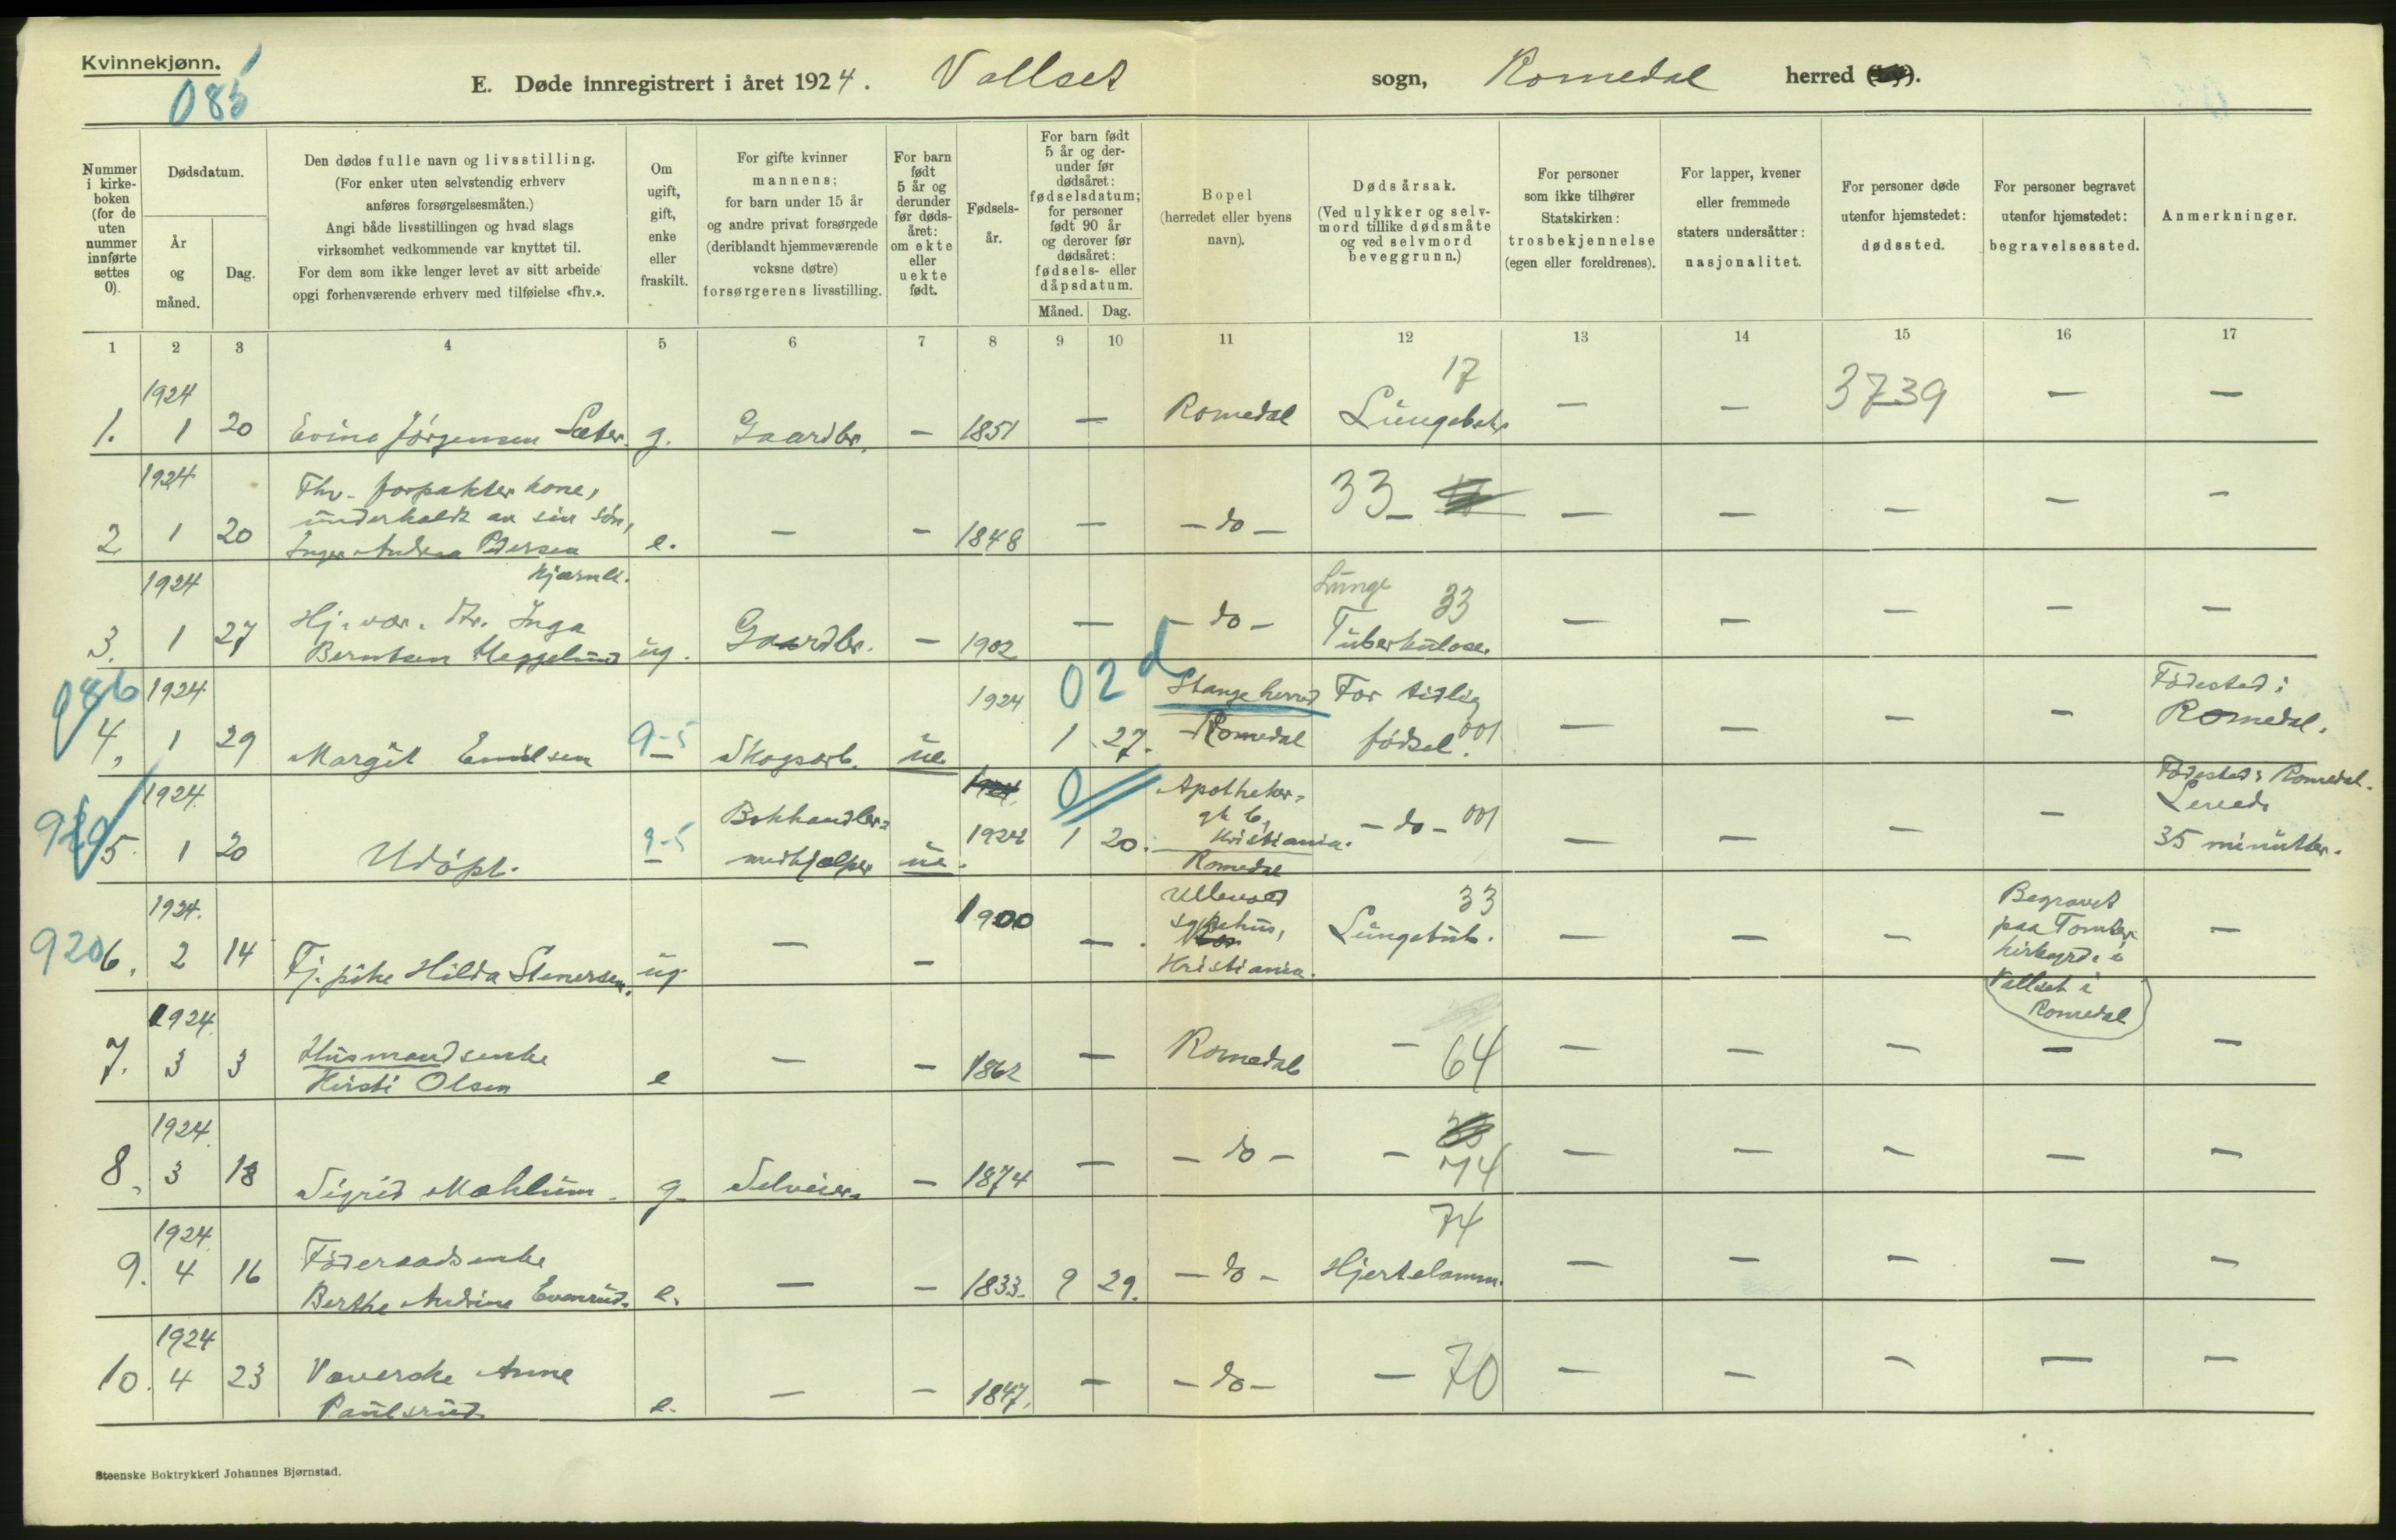 Kvinnekjønn.
085
E. Døde innregistrert i året 1924. Vallset sogn, Romedal herred (by).
Nummer i kirkeboken (for de uten nummer innførte settes 0).
Dødsdatum.
År og måned.
Dag.
Den dødes fulle navn og livsstilling.
(For enker uten selvstendig erhverv
anføres forsørgelsesmåten.)
Angi både livsstillingen og hvad slags
virksomhet vedkommende var knyttet til.
For dem som ikke lenger levet av sitt arbeide
opgi forhenværende erhverv med tilføielse «fhv.».
Om ugift, gift, enke eller fraskilt.
For gifte kvinner
mannens;
for barn under 15 år
og andre privat forsørgede
(deriblandt hjemmeværende
voksne døtre)
forsørgerens livsstilling.
For barn født 5 år og derunder før dødsåret: om ekte eller uekte født.
Fødselsår.
For barn født 5 år og derunder før dødsåret: fødselsdatum; for personer født 90 år og derover før dødsåret: fødsels- eller dåpsdatum.
Måned. Dag.
Bopel
(herredet eller byens
navn).
Dødsårsak.
(Ved ulykker og selvmord tillike dødsmåte
og ved selvmord
beveggrunn.)
For personer
som ikke tilhører
Statskirken:
trosbekjennelse
(egen eller foreldrenes).
For lapper, kvener
eller fremmede
staters undersåtter:
nasjonalitet.
For personer døde
utenfor hjemstedet:
dødssted.
For personer begravet
utenfor hjemstedet:
begravelsessted.
Anmerkninger.
1 2 3 4 5 6 7 8 9 10 11 12 13 14 15 16 17
1. 1924 1 20 Evine Jörgensen Sæter. g. Gaardbr. — 1851 — Romedal 17 — — 3739 — —
2 1924 1 20 Fhv. forpakter kone,
underholdt av sin sön,
Inger Andrea Pedersen e. — — 1848 — — do — 33 — — — — — —
Kjærnli.
3. 1924 1 27 Hj. vær. dtr. Inga
Berntsen Heggelund ug. Gaardbr. — 1902 — — do — Lunge 33
Tuberkulose. — — — — —
086 4. 1924 1 29 Margit Emilsen 9-5 Skogsarb. ue 1924 1 27. 02d Stange herred
Romedal For tidlig
födsel. 001 — — — — Födested i
Romedal.
920 5. 1924. 1 20 Udöpt. 9-5 Bokhandler=
medhjælper ue. 1924 1 20. 0 Apotheker=
gt 6,
Kristiania.
Romedal — do — 001 — — — — Födested: Romedal.
Levede
35 minutter.
920 6. 1924. 2 14 Tj. pike Hilda Stenersen. ug. — — 1900 — Ullevold
sykehus,
Kristiania. 33
Lungetub. — — — Begravet
paa Tomter
kirkegrd. i
Vallset i
Romedal —
7. 1924. 3 3 Husmandsenke
Kirsti Olsen e — — 1862 — Romedal — 64 — — — — —
8. 1924. 3 18 Sigrid Mæhlum. g. Selveier. — 1874 — — do — — 74 — — — — —
9. 1924 4 16 Föderaadsenke
Berthe Andrine Evenrud. e. — — 1833. 9 29. — do — 74
Hjertelamm. — — — — —
10. 1924 4 23 Væverske Anne
Paulsrud e. — — 1847. — — do — — 70 — — — — —
Steenske Boktrykkeri Johannes Bjørnstad.